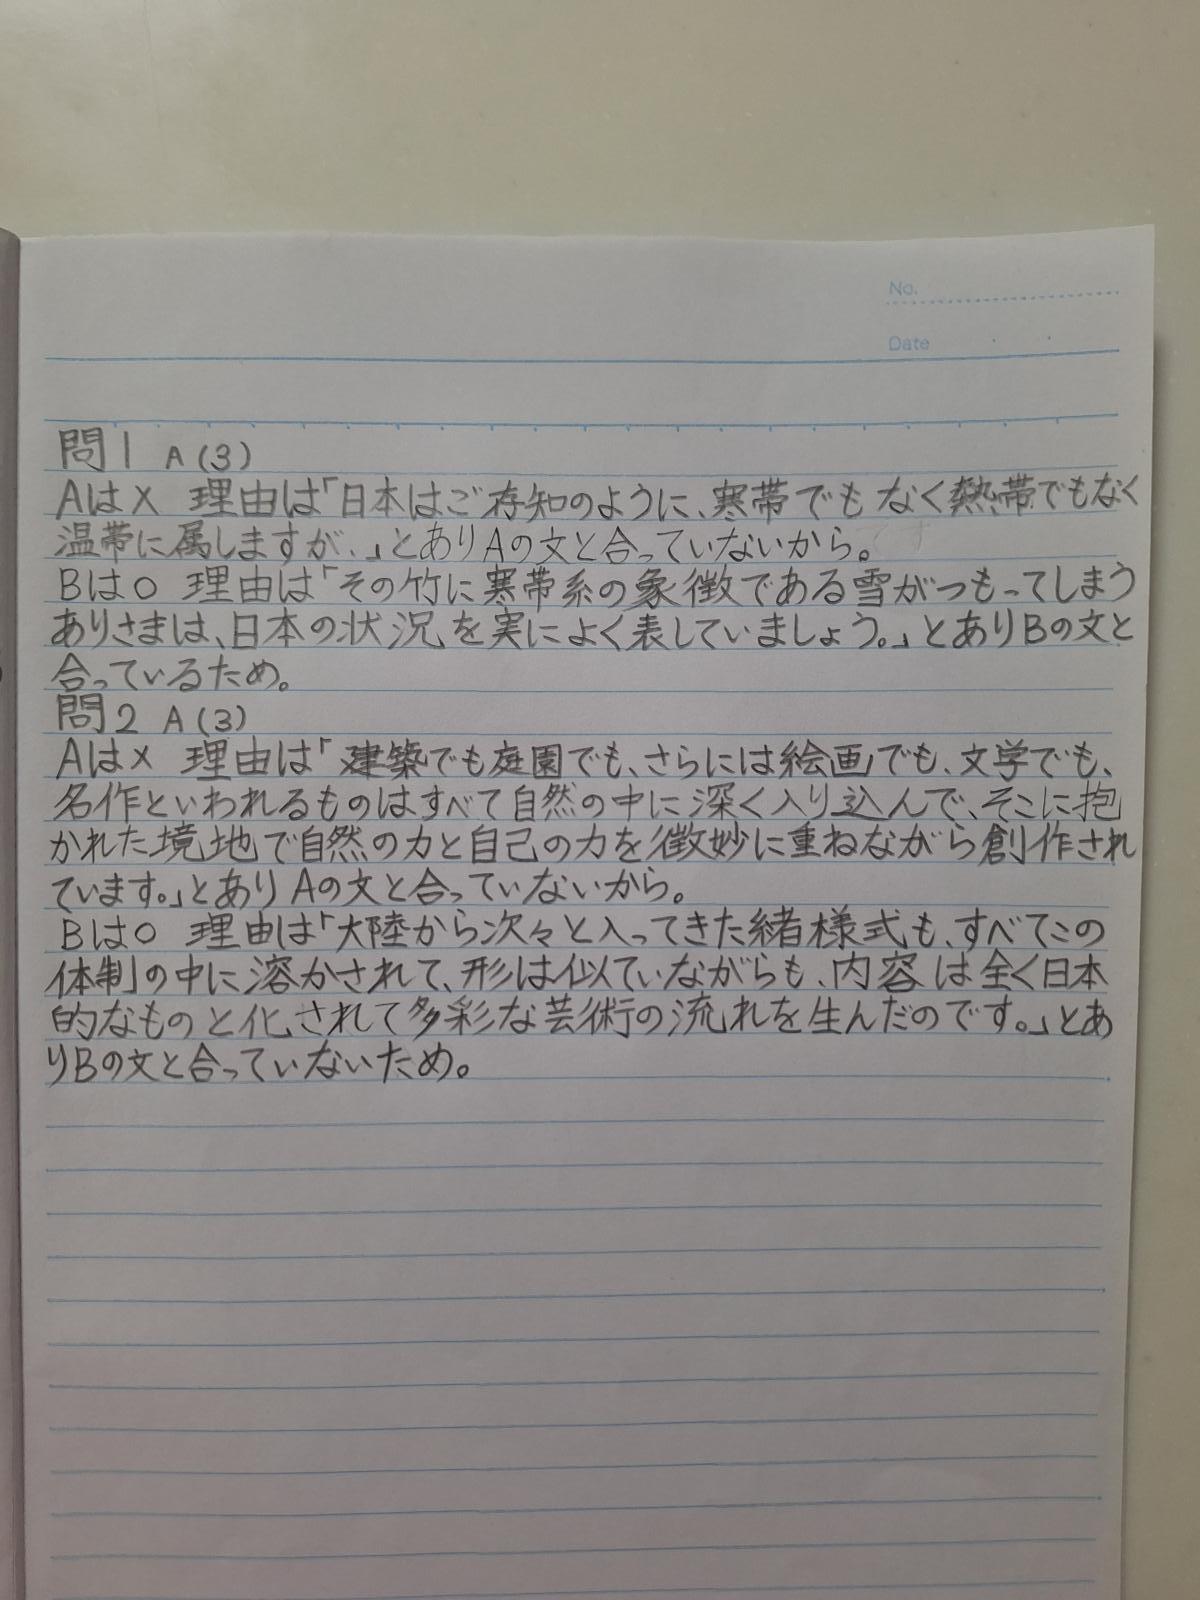 No.
Date
問1 A(3)
Aは× 理由は「日本はご存知のように、寒帯でもなく熱帯でもなく
温帯に属しますが、」とありAの文と合っていないから。
Bは○ 理由は「その竹に寒帯系の象徴である雪がつもってしまう
ありさまは、日本の状況を実によく表していましょう。」とありBの文と
合っているため。
問2 A(3)
Aは× 理由は「建築でも庭園でも、さらには絵画でも、文学でも、
名作といわれるものはすべて自然の中に深く入り込んで、そこに抱
かれた境地で自然の力と自己の力を微妙に重ねながら創作され
ています。」とありAの文と合っていないから。
Bは○ 理由は「大陸から次々と入ってきた緒様式も、すべてこの
体制の中に溶かされて、形は似ていながらも、内容は全く日本
的なものと化されて多彩な芸術の流れを生んだのです。」とあ
りBの文と合っていないため。